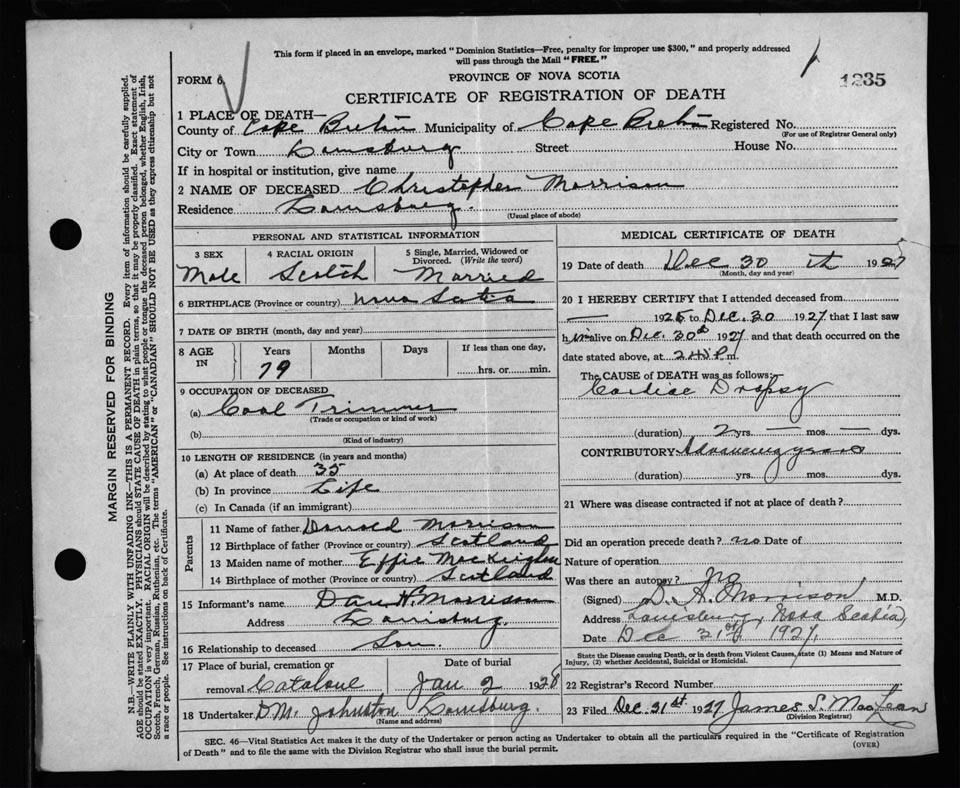 This form if placed in an envelope, marked "Dominion Statistics—Free, penalty for improper use $300," and properly addressed
will pass through the Mail "FREE."
FORM 6
PROVINCE OF NOVA SCOTIA
1235
CERTIFICATE OF REGISTRATION OF DEATH
1 PLACE OF DEATH—
County of Cape Breton Municipality of Cape Breton Registered No.
(For use of Registrar General only)
City or Town Louisburg Street House No.
If in hospital or institution, give name
2 NAME OF DECEASED Christopher Morrison
Residence Louisburg.
(Usual place of abode)
PERSONAL AND STATISTICAL INFORMATION
3 SEX 4 RACIAL ORIGIN 5 Single, Married, Widowed or
Divorced. (Write the word)
Male Scotch Married
6 BIRTHPLACE (Province or country) Nova Scotia
7 DATE OF BIRTH (month, day and year)
8 AGE IN Years Months Days If less than one day,
79 hrs. or min.
9 OCCUPATION OF DECEASED
(a) Coal Trimmer
(Trade or occupation or kind of work)
(b)
(Kind of industry)
10 LENGTH OF RESIDENCE (in years and months)
(a) At place of death 35
(b) In province Life
(c) In Canada (if an immigrant)
Parents
11 Name of father Donald Morrison
12 Birthplace of father (Province or country) Scotland
13 Maiden name of mother Effie
14 Birthplace of mother (Province or country) Scotland
15 Informant's name Dan H. Morrison
Address Louisburg.
16 Relationship to deceased Son.
17 Place of burial, cremation or Date of burial
removal Catalone Jan 2 1928
18 Undertaker D.M. Johnston Louisburg.
(Name and address)
MEDICAL CERTIFICATE OF DEATH
19 Date of death Dec 30 th 1927
(Month, day and year)
20 I HEREBY CERTIFY that I attended deceased from
— 1925 to Dec. 30 1927 that I last saw
him alive on Dec. 30th 1927 and that death occurred on the
date stated above, at m.
The CAUSE of DEATH was as follows:
Cardiac Dropsy
(duration) 2 yrs. — mos. — dys.
CONTRIBUTORY Advancing years
(duration) yrs. mos. dys.
21 Where was disease contracted if not at place of death?
Did an operation precede death? no Date of
Nature of operation
Was there an autopsy? No
(Signed) D. A. Morrison M.D.
Address Louisburg, Nova Scotia,
Date Dec 31st 1927,
State the Disease causing Death, or in death from Violent Causes, state (1) Means and Nature of
Injury, (2) whether Accidental, Suicidal or Homicidal.
22 Registrar's Record Number
23 Filed Dec. 31st 1927 James S. MacLean
(Division Registrar)
SEC. 46—Vital Statistics Act makes it the duty of the Undertaker or person acting as Undertaker to obtain all the particulars required in the "Certificate of Registration
of Death" and to file the same with the Division Registrar who shall issue the burial permit.
(OVER)
MARGIN RESERVED FOR BINDING
N.B.—WRITE PLAINLY WITH UNFADING INK—THIS IS A PERMANENT RECORD. Every item of information should be carefully supplied.
AGE should be stated EXACTLY. PHYSICIANS should STATE CAUSE OF DEATH in plain terms, so that it may be properly classified. Exact statement of
OCCUPATION is very important. RACIAL ORIGIN will be described by stating to what people or tongue the deceased person belonged, whether English, Irish,
Scotch, French, German, Russian, Ruthenian, etc. The terms "AMERICAN" or "CANADIAN" SHOULD NOT BE USED as they express citizenship but not
a race or people. See instructions on back of Certificate.